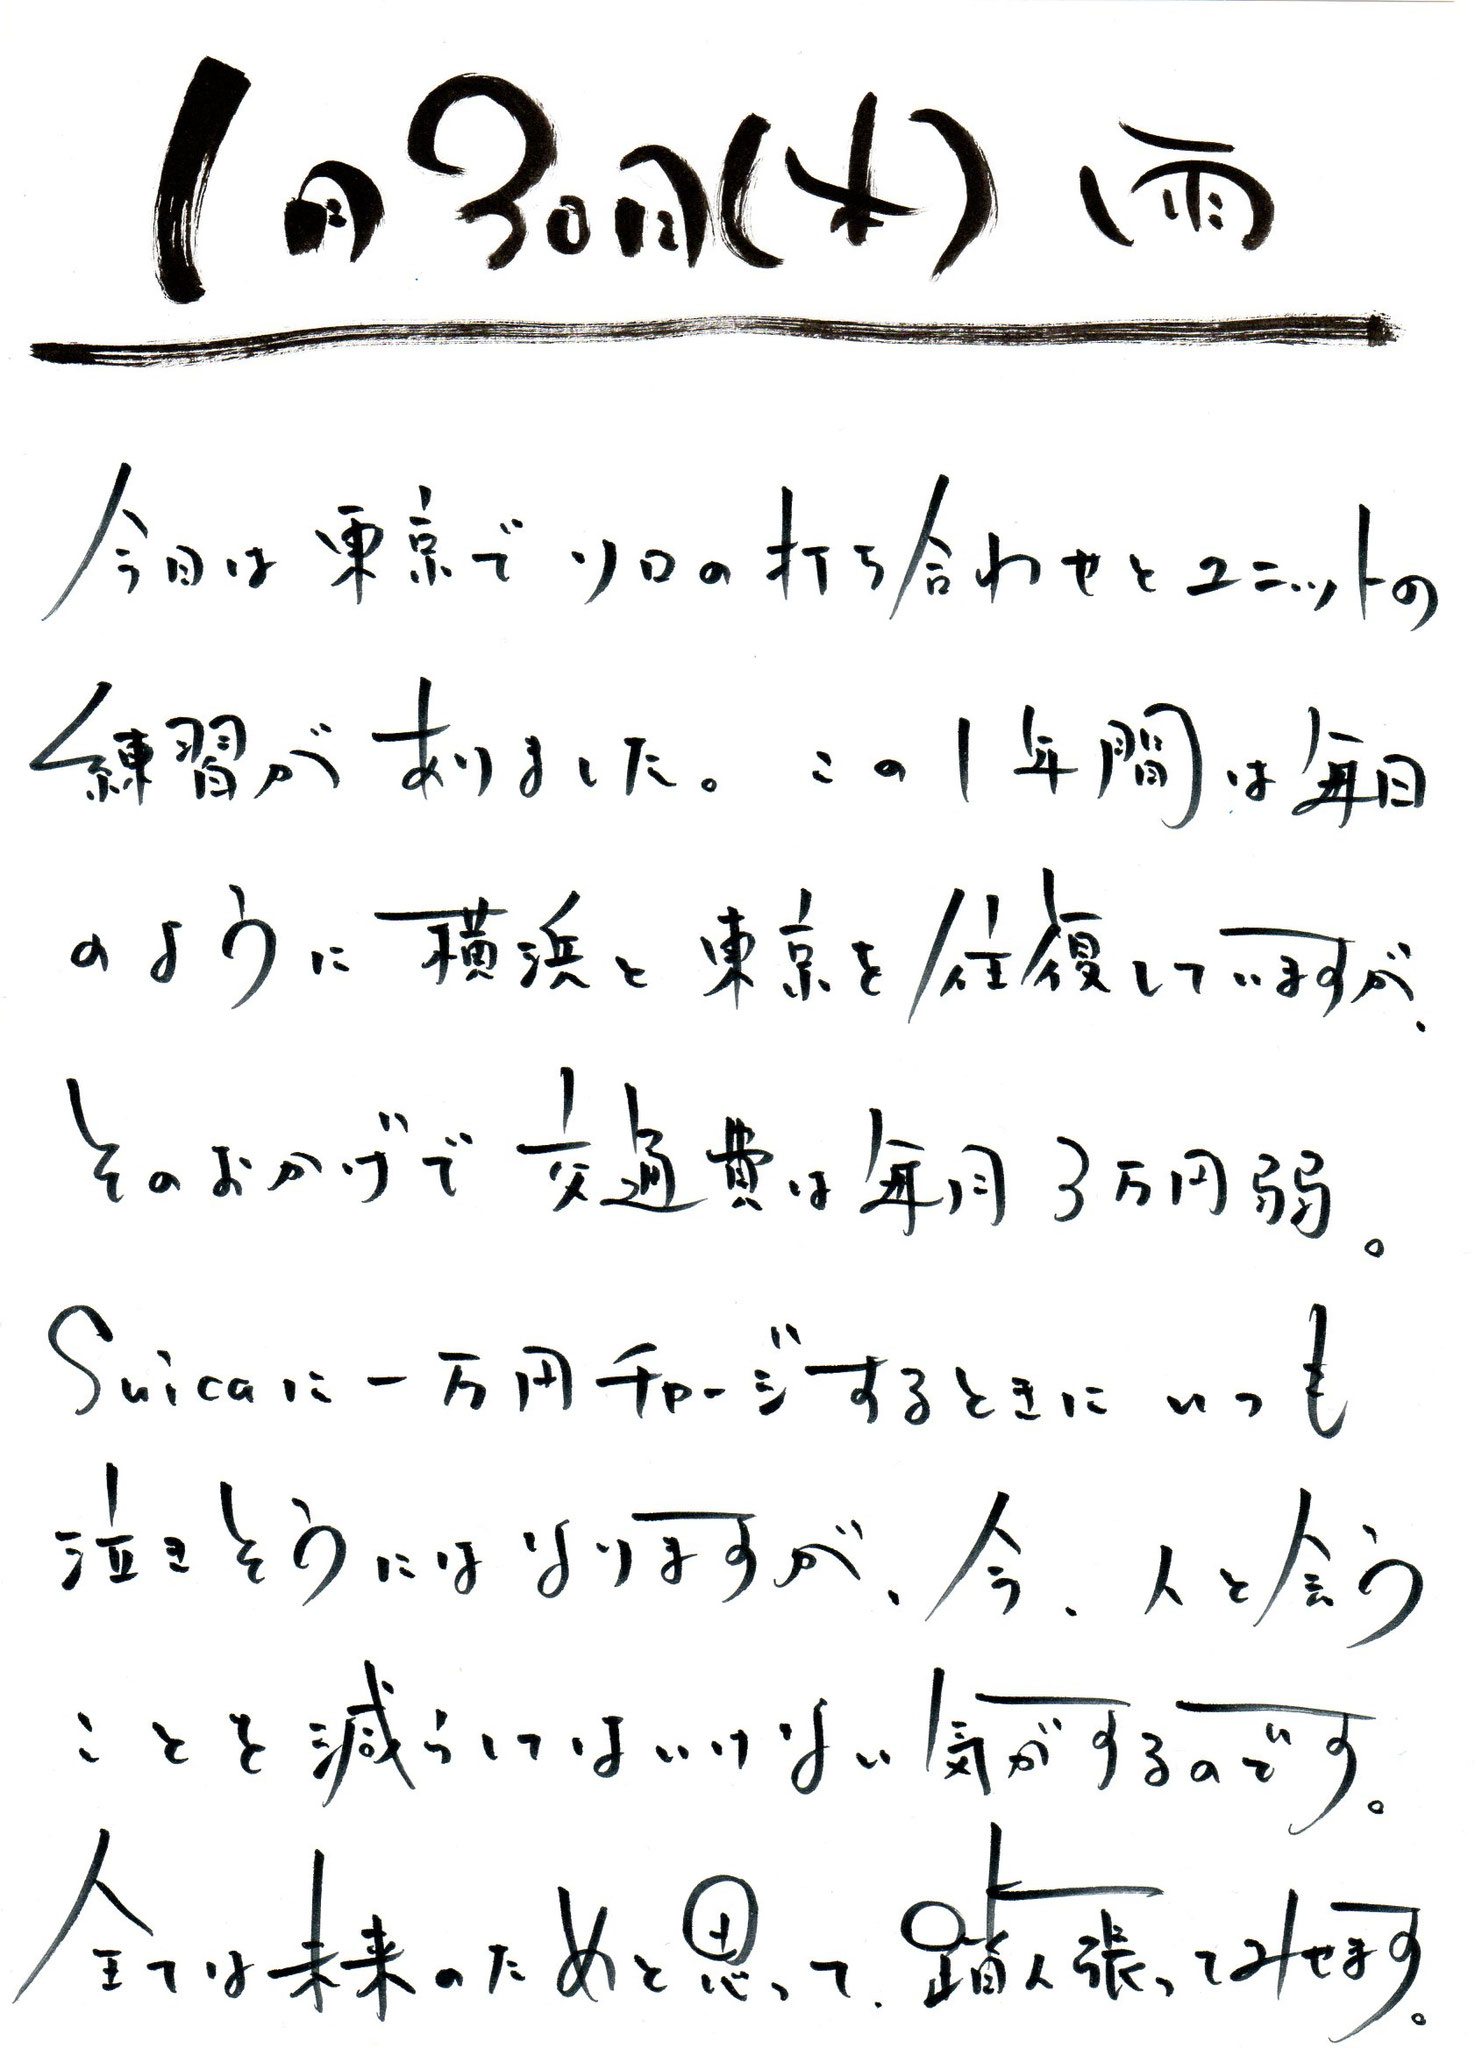 1月30日(水) 雨
今日は東京でソロの打ち合わせとユニットの
練習がありました。この1年間は毎日
のように横浜と東京を往復していますが、
そのおかげで交通費は毎月3万円弱。
Suicaに一万円チャージするときにいつも
泣きそうにはなりますが、今、人と会う
ことを減らしてはいけない気がするのです。
全ては未来のためと思って、踏ん張ってみせます。